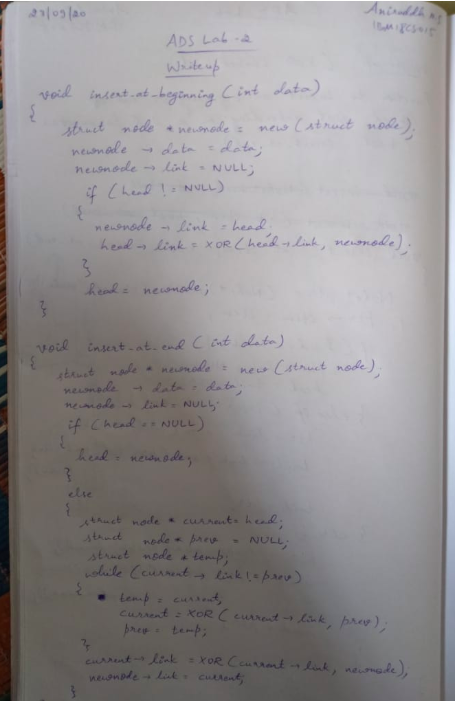 27/09/20
Aniruddh
ADS Lab - 2
Writeup
void insert_at_beginning (int data)
{
struct node * newnode = new (struct node);
newnode → data = data;
newnode → link = NULL;
if (head != NULL)
{
newnode → link = head;
head → link = XOR (head → link, newnode);
}
head = newnode;
}
void insert_at_end (int data)
{
struct node * newnode = new (struct node);
newnode → data = data;
newnode → link = NULL;
if (head == NULL)
{
head = newnode;
}
else
{
struct node * current = head;
struct node * prev = NULL;
struct node * temp;
while (current → link != prev)
{
temp = current;
current = XOR (current → link, prev);
prev = temp;
}
current → link = XOR (current → link, newnode);
newnode → link = current;
}